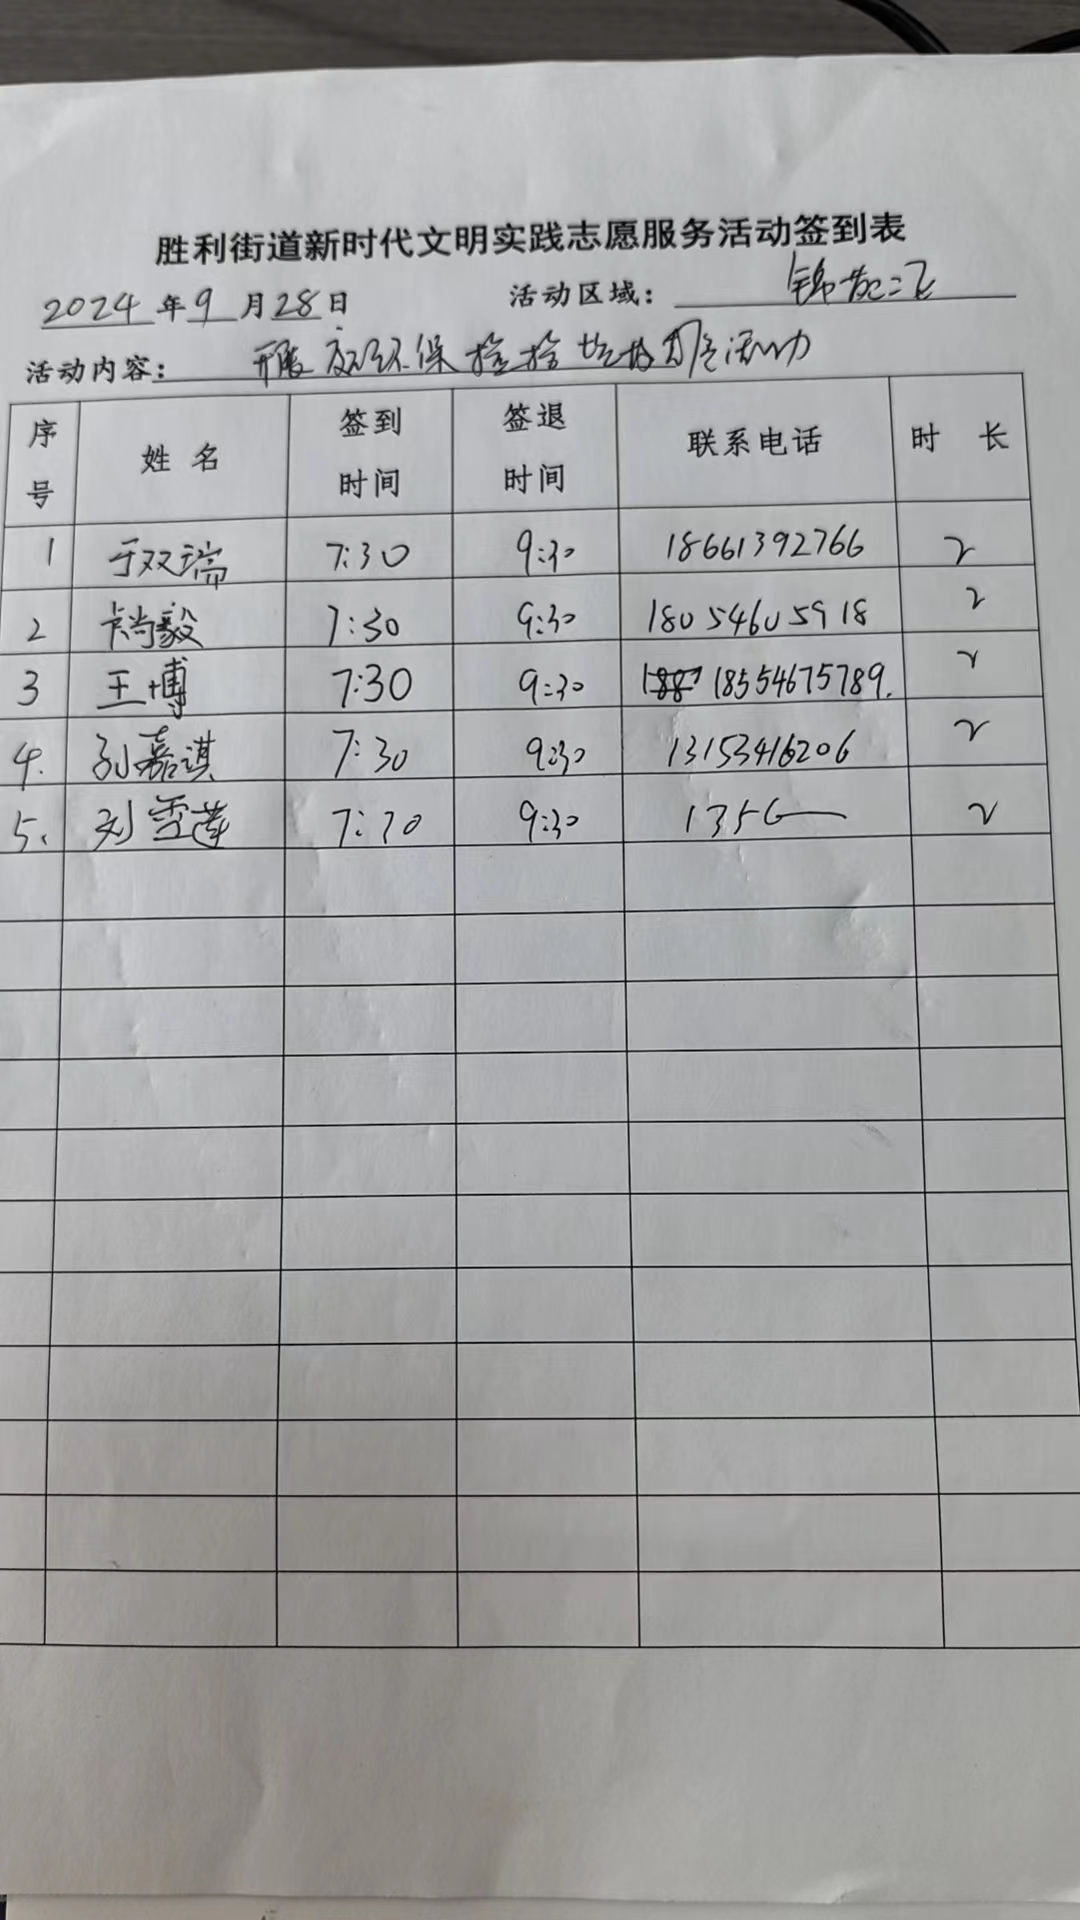 胜利街道新时代文明实践志愿服务活动签到表
2024年9月28日 活动区域：锦苑二区
活动内容：开展 环保 捡拾垃圾 活动
序号 姓名 签到时间 签退时间 联系电话 时长
1 于双瑞 7:30 9:30 18661392766 2
2 毅 7:30 9:30 18054605918 2
3 王博 7:30 9:30 18554675789. 2
4. 孙嘉淇 7:30 9:30 13153416206 2
5. 刘雪莲 7:30 9:30 1356 2